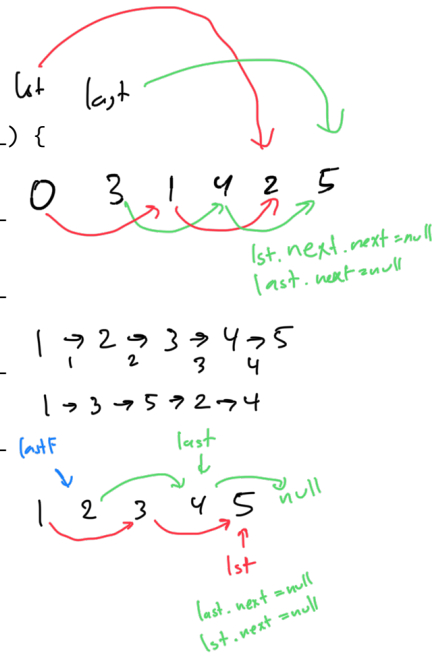 lst last
) {
0 3 1 4 2 5
lst.next.next=null
last.next=null
1 → 2 → 3 → 4 → 5
1 2 3 4
1 → 3 → 5 → 2 → 4
lastF last
1 2 3 4 5 null
lst
last.next=null
lst.next=null